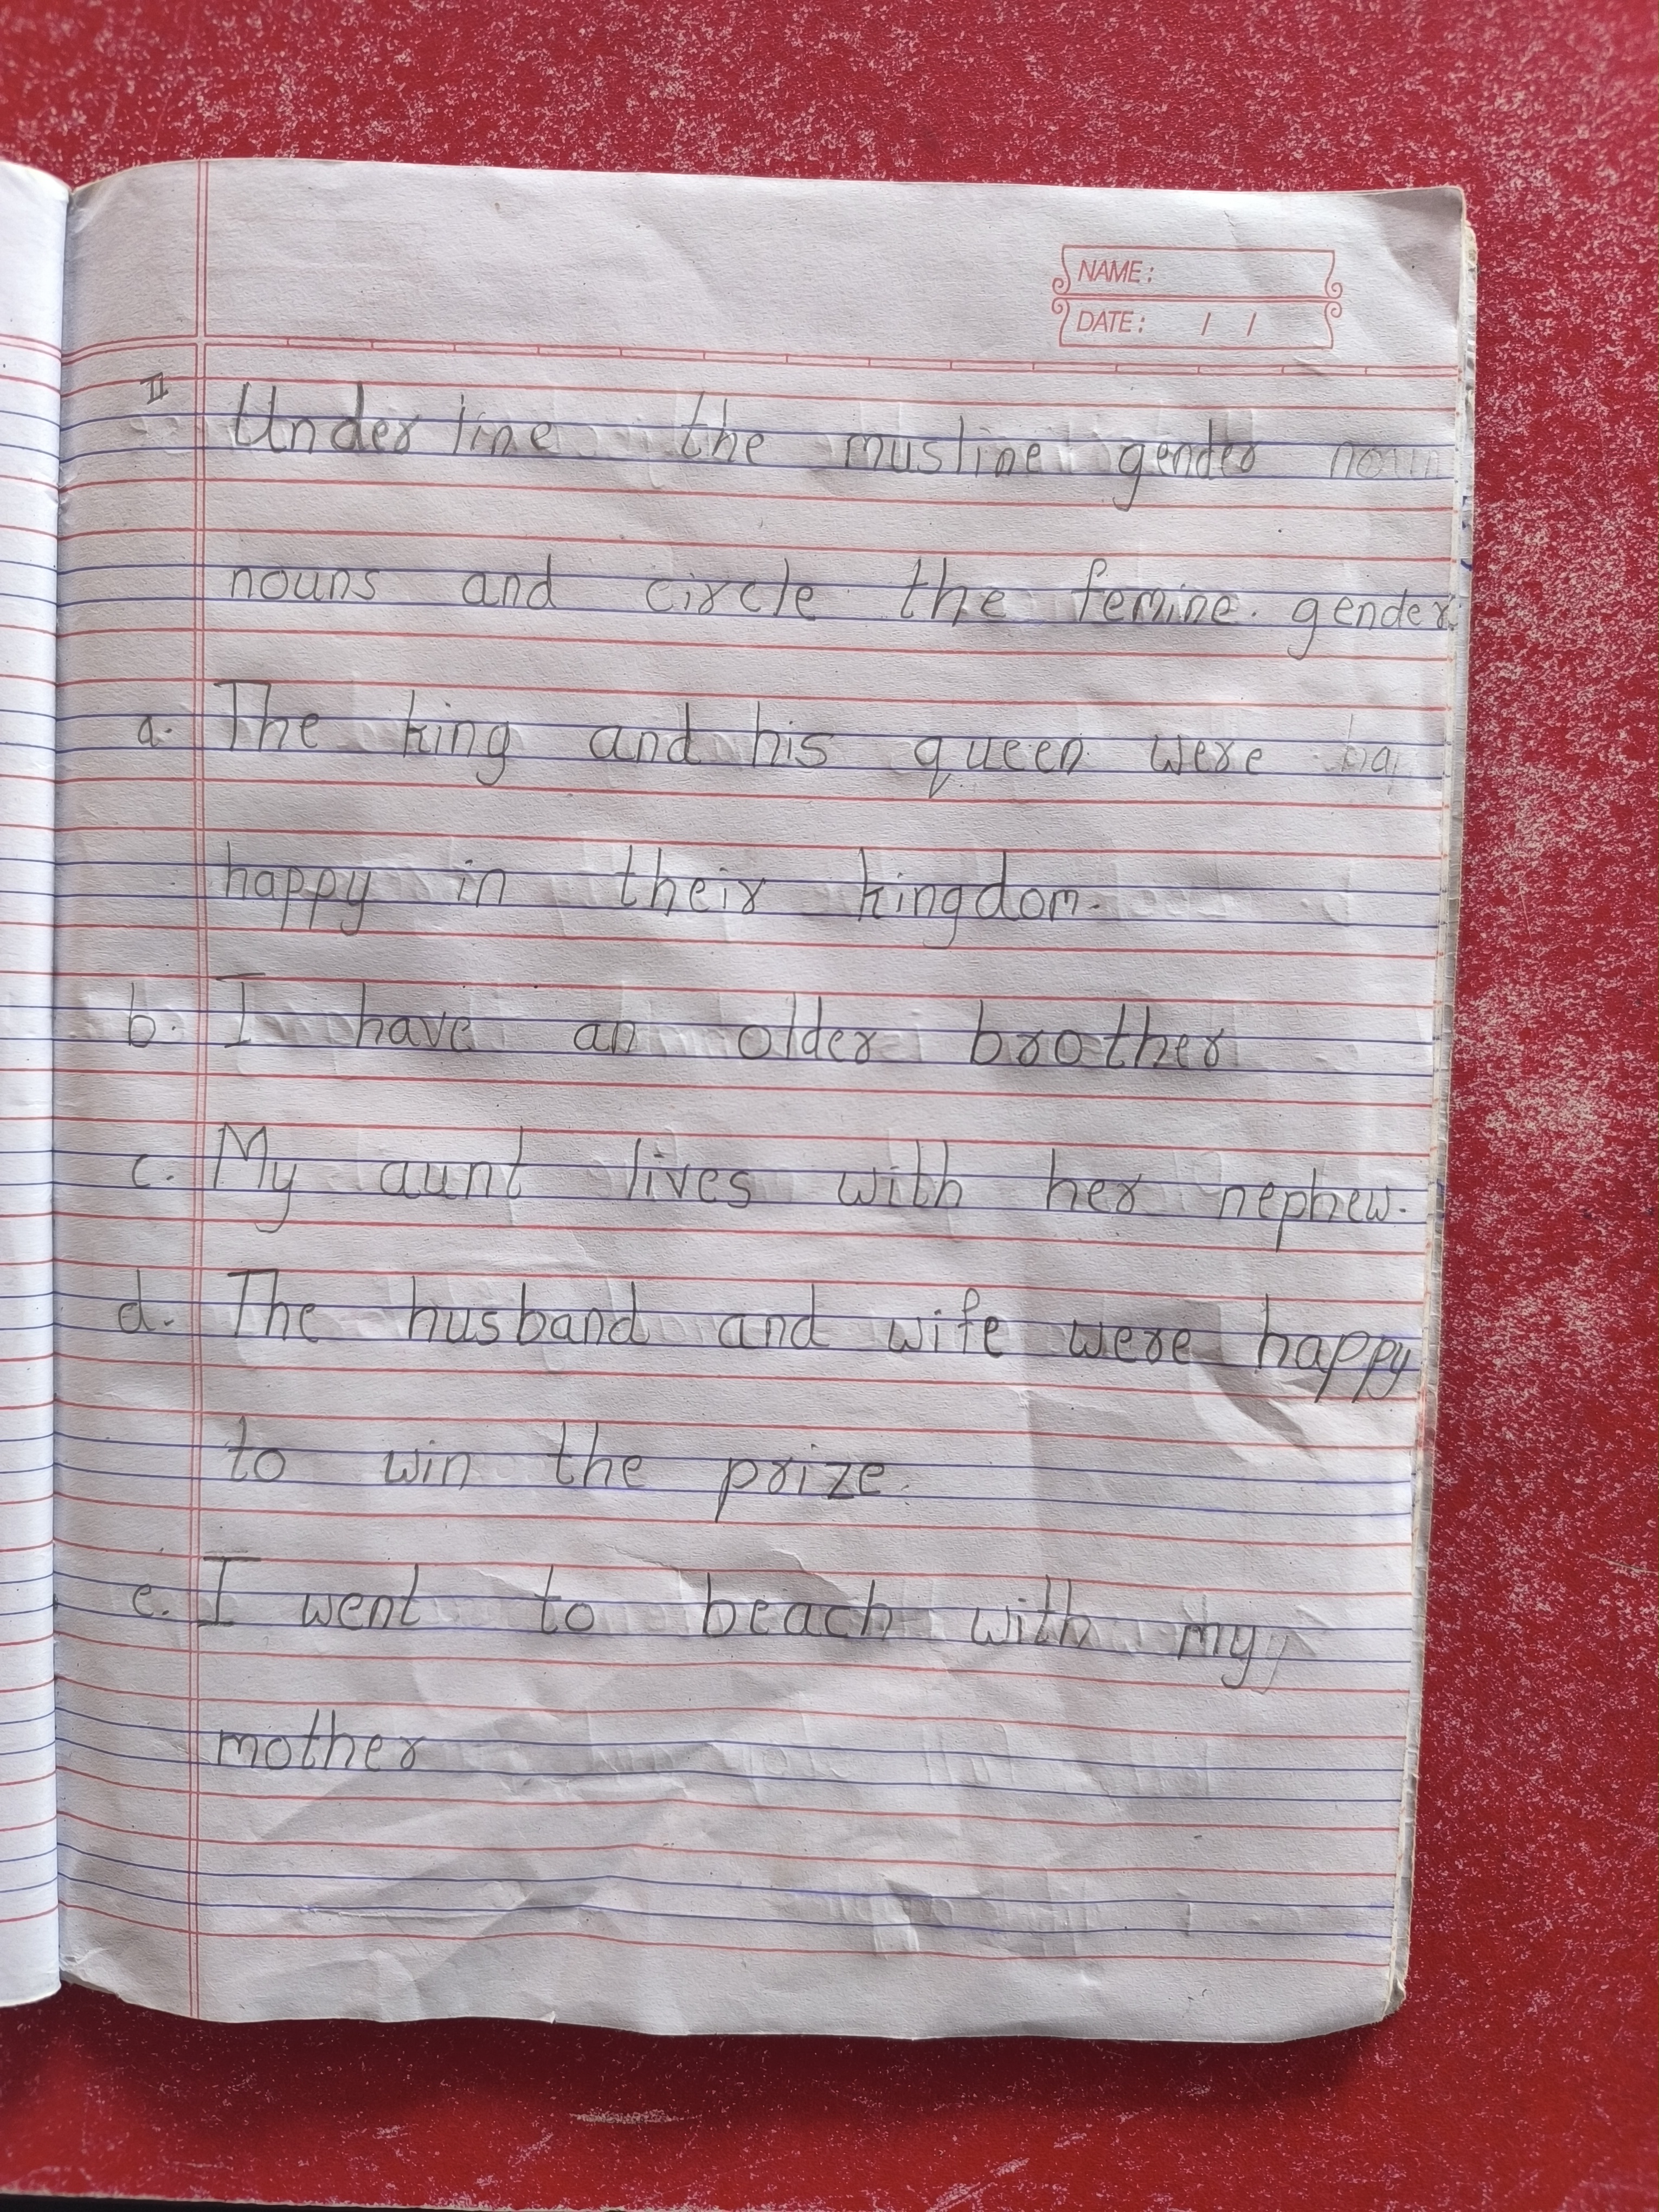 NAME:
DATE: / /
II Under line the musline gender noun
nouns and circle the femine. gender.
a. The king and his queen were ha
happy in their kingdom.
b. I have an older brother
c. My aunt lives with her nephew.
d. The husband and wife were happy
to win the prize.
e. I went to beach with my
mother